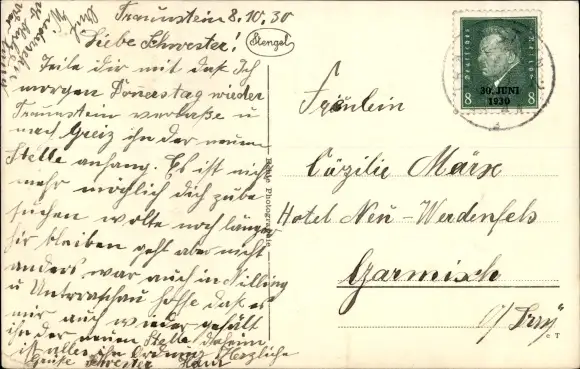 Traunstein 8.10.30
Liebe Schwester!
Stengel
Teile dir mit daß Ich
morgen Donerstag wieder
Traunstein verlaße u
nach Greiz ihn der neuen
Stelle anfang. Es ist nicht
mehr möglich dich zube
suchen wolte noch länger
hir bleiben geht aber nicht
anders war auch in
u hoffe daß es
mir auch wieder gefält
ihn der neuen Stelle daheim
ist alles ihn Ordnung Herzliche
Grüße Schwester
Auf
Echte Photographie
Deutsches Reich
8 8
30. JUNI
1930
Fräulein
Cäzilie Märx
Hotel Neu-Werdenfels
Garmisch